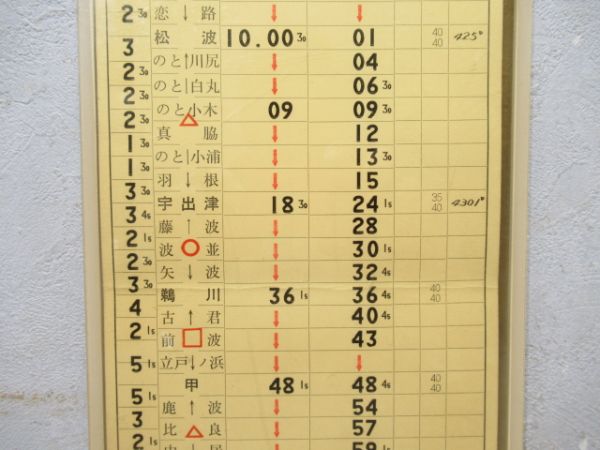 2 30 恋 ↓ 路 ↓ ↓
3 松 波 10.00 30 01 40 40 425°
2 30 のと↑川尻 ↓ 04
2 30 のと|白丸 ↓ 06 30
2 30 のと小木 △ 09 09 30
2 30 真 脇 ↓ 12
1 30 のと|小浦 ↓ 13 30
1 30 羽 ↓ 根 ↓ 15
3 30 宇出津 18 30 24 1s 35 40 4301°
3 4s 藤 ↑ 波 ↓ 28
2 1s 波 ○ 並 ↓ 30 1s
2 30 矢 ↓ 波 ↓ 32 4s
3 30 鵜 川 36 1s 36 4s 40 40
4 古 ↑ 君 ↓ 40 4s
2 1s 前 □ 波 ↓ 43
5 1s 立戸↓ノ浜 ↓ ↓
甲 48 1s 48 4s 40 40
5 1s 鹿 ↑ 波 ↓ 54
3 比 △ 良 ↓ 57
2 1s